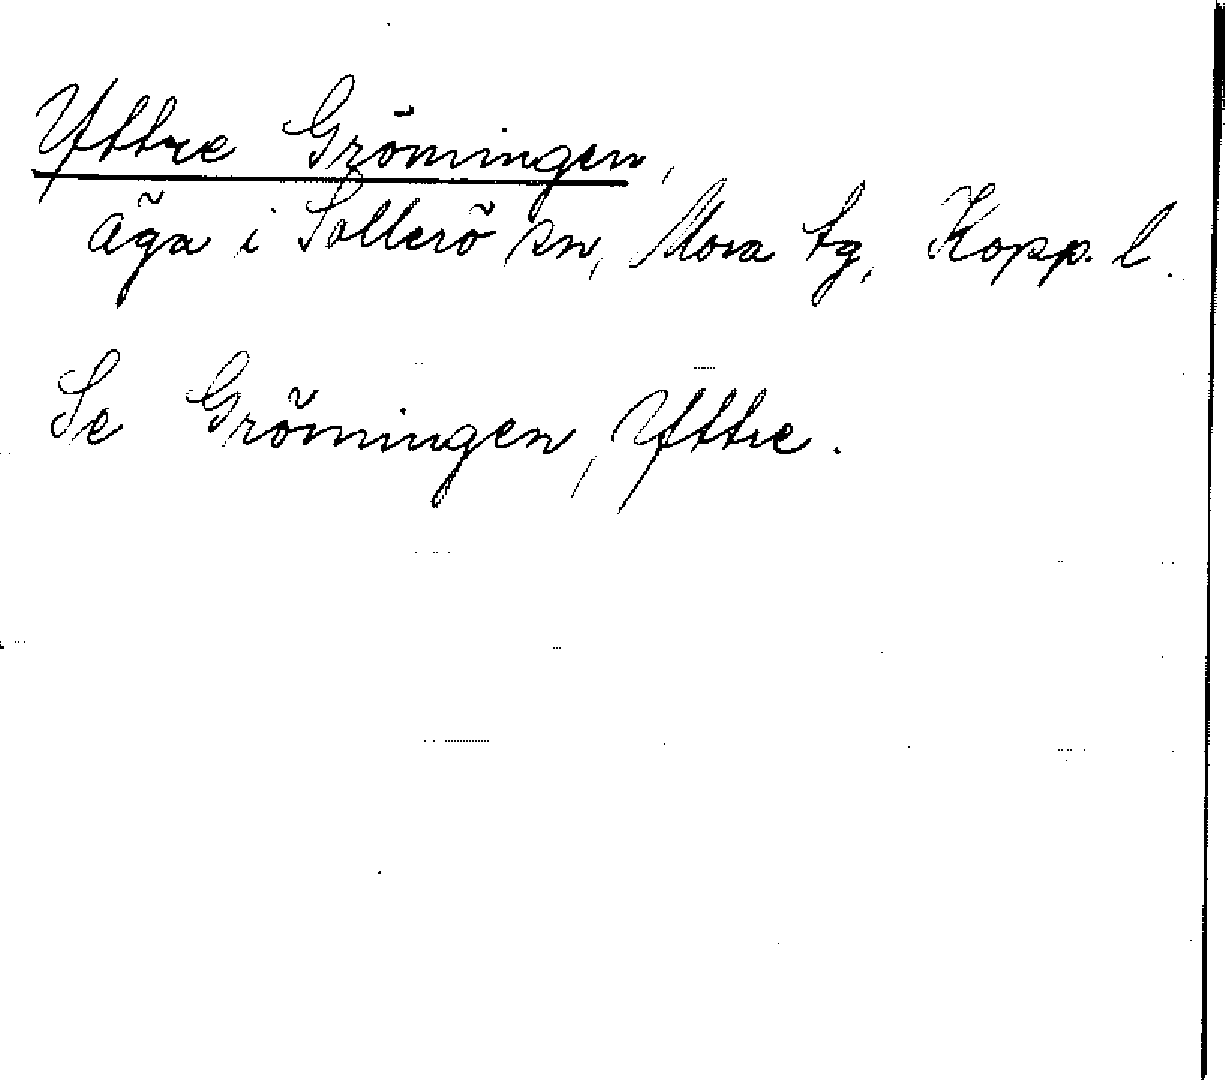 Yttre Gröningen,
äga i Sollerö sn, Mora tg, Kopp. l.
Se Gröningen, Yttre.